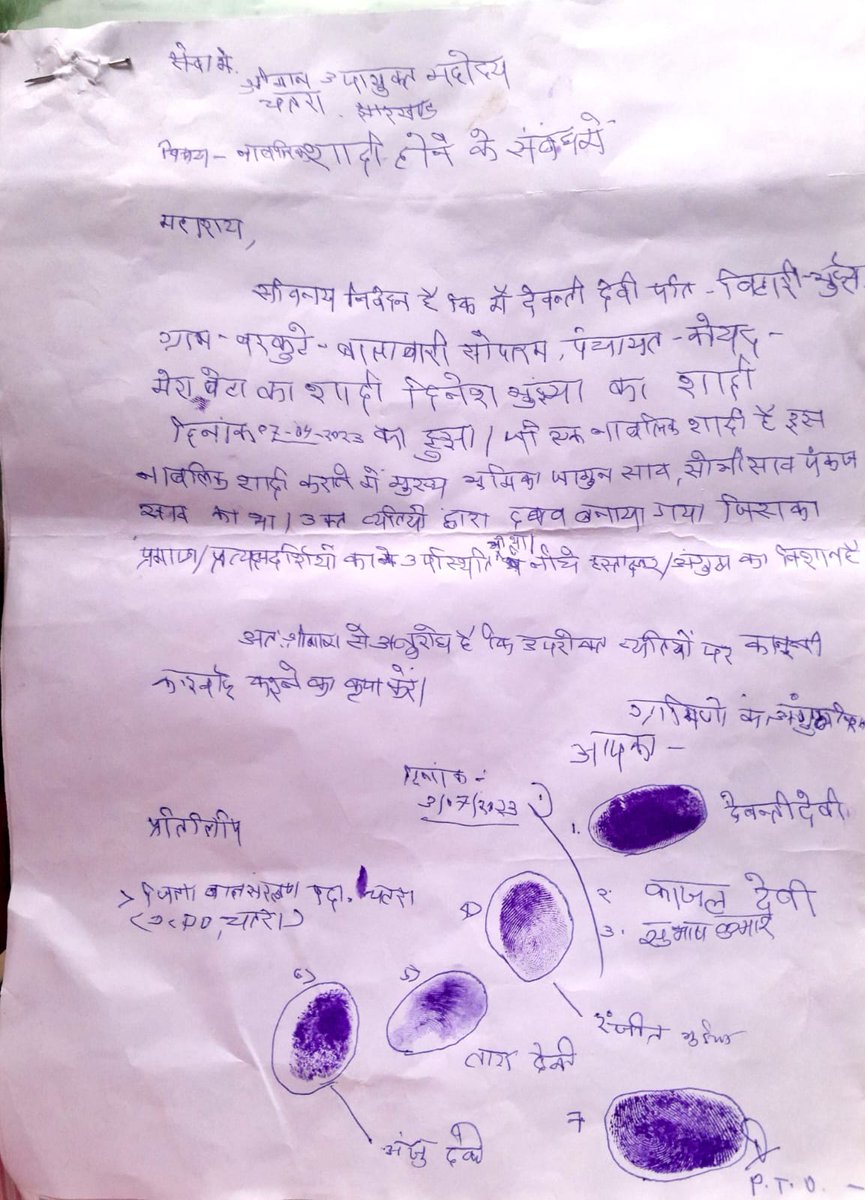 सेवा में,
श्रीमान उपायुक्त महोदय
चतरा, झारखण्ड
विषय - नाबलिक शादी होने के संबंध में
महाशय,
सविनय निवेदन है कि मैं देवन्ती देवी पति - बिहारी भुईया
ग्राम - बरकुटे - पंचायत - कोयद -
मेरा बेटा का शादी दिनेश भुंइया का शादी
दिनांक 07-04-2023 का हुआ। जो एक नाबलिक शादी है इस
नाबलिक शादी कराने में मुख्य भूमिका जागुन साव, सोनी साव पंकज
साव का था। उक्त व्यक्तियों द्वारा दबाव बनाया गया जिसका
प्रमाण/प्रत्यक्षदर्शियों का उपस्थिति नीचे हस्ताक्षर/अंगुठा का निशान है
अतः श्रीमान से अनुरोध है कि उपरोक्त व्यक्तियों पर कानूनी
कारवाई करने का कृपा करें।
ग्रामिणो का अंगुठा
आपका -
दिनांक -
3/07/2023
1. देवन्ती देवी
प्रतिलिपि
> जिला बाल संरक्षण पदा. चतरा
2. काजल देवी
3. सुभाष कुमार
4)
5)
6)
रंजीत भुईया
तारा देवी
अंजु देवी
7
P.T.O. -